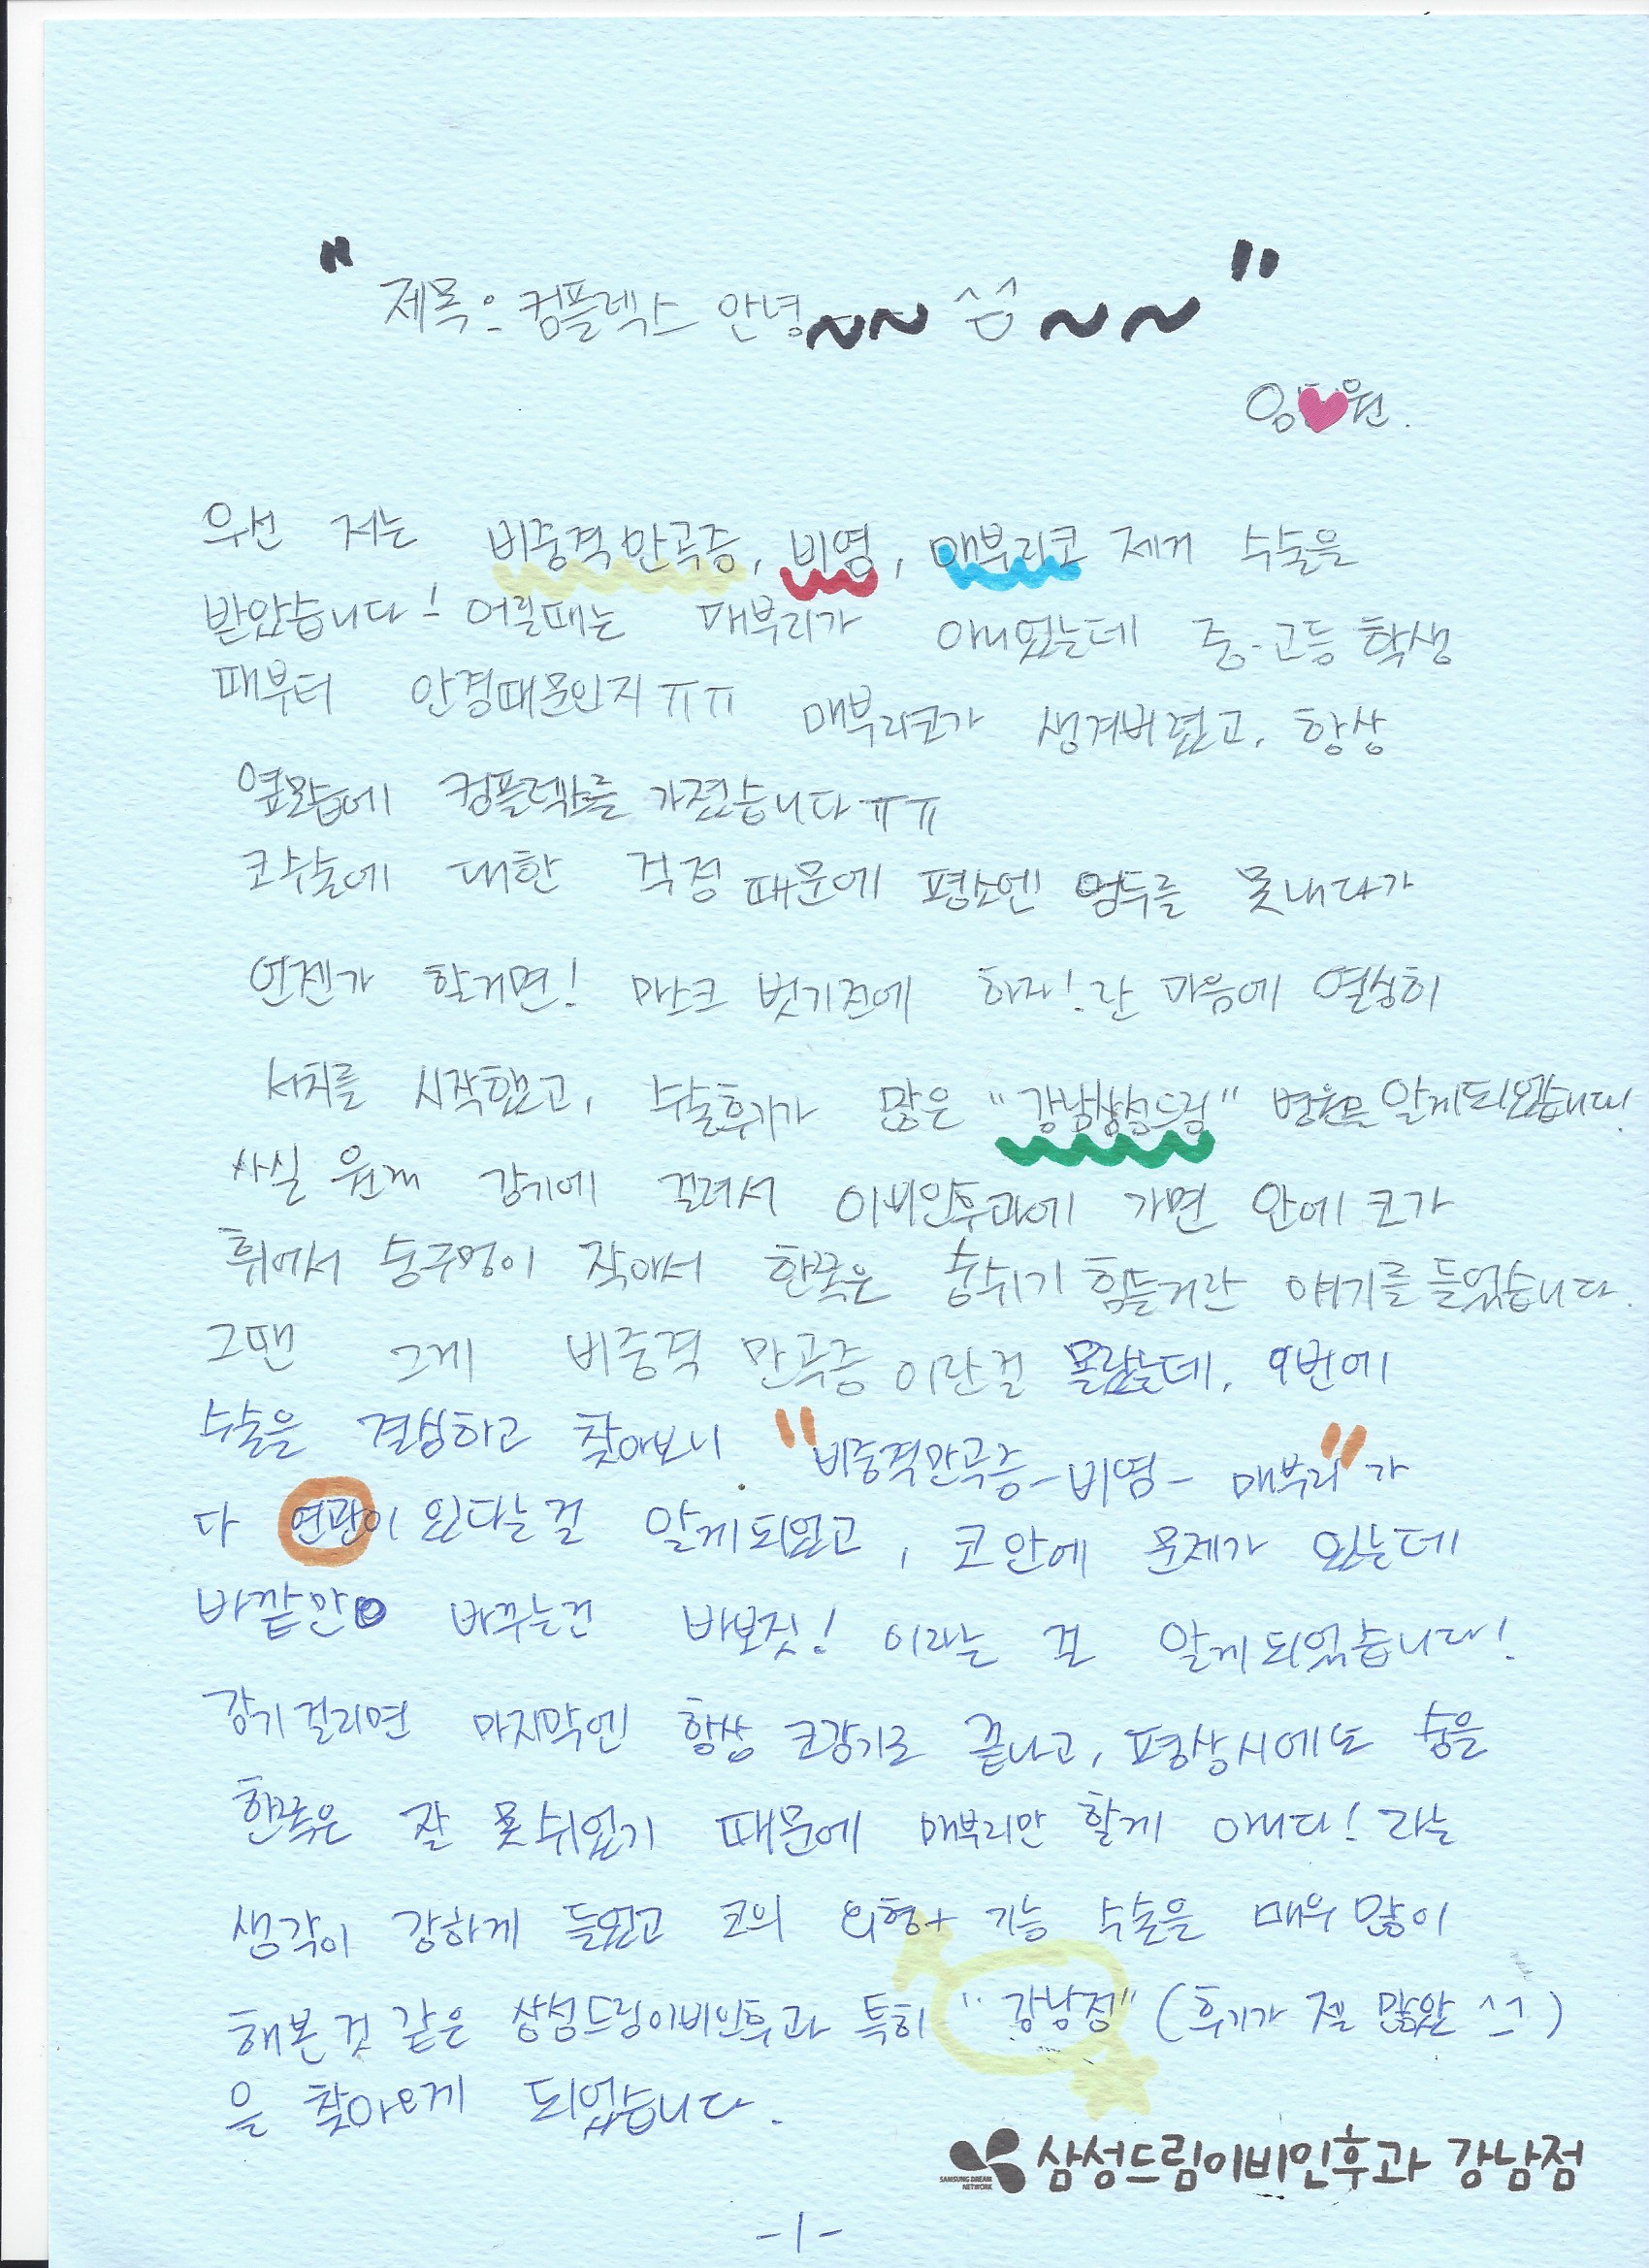 " 제목 : 컴플렉스 안녕~~ ^^ ~~ "
양♥원.
우선 저는 비중격만곡증, 비염, 매부리코 제거 수술을
받았습니다! 어릴때는 매부리가 아니였는데 중·고등 학생
때부터 안경때문인지ㅠㅠ 매부리코가 생겨버렸고, 항상
옆모습에 컴플렉스를 가졌습니다ㅠㅠ
코수술에 대한 걱정 때문에 평소엔 엄두를 못내다가
언젠가 할거면! 마스크 벗기전에 하자!란 마음에 열심히
서치를 시작했고, 수술후기가 많은 "강남삼성드림" 병원을 알게되었습니다!
사실 원래 감기에 걸려서 이비인후과에 가면 안에 코가
휘어서 숨구멍이 작아서 한쪽은 숨쉬기 힘들거란 얘기를 들었습니다.
그땐 그게 비중격 만곡증이란걸 몰랐는데, 9번에
수술을 결심하고 찾아보니 "비중격만곡증-비염- 매부리"가
다 연관이 있다는걸 알게되었고, 코안에 문제가 있는데
바깥만 바꾸는건 바보짓! 이라는 걸 알게되었습니다!
감기걸리면 마지막엔 항상 코감기로 끝나고, 평상시에도 숨을
한쪽은 잘 못쉬었기 때문에 매부리만 할게 아니다! 라는
생각이 강하게 들었고 코의 외형+ 기능 수술을 매우 많이
해본것 같은 삼성드림이비인후과 특히 "강남점" (후기가 젤 많았 ^^)
을 찾아오게 되었습니다.
SAMSUNG DREAM NETWORK 삼성드림이비인후과 강남점
-1-